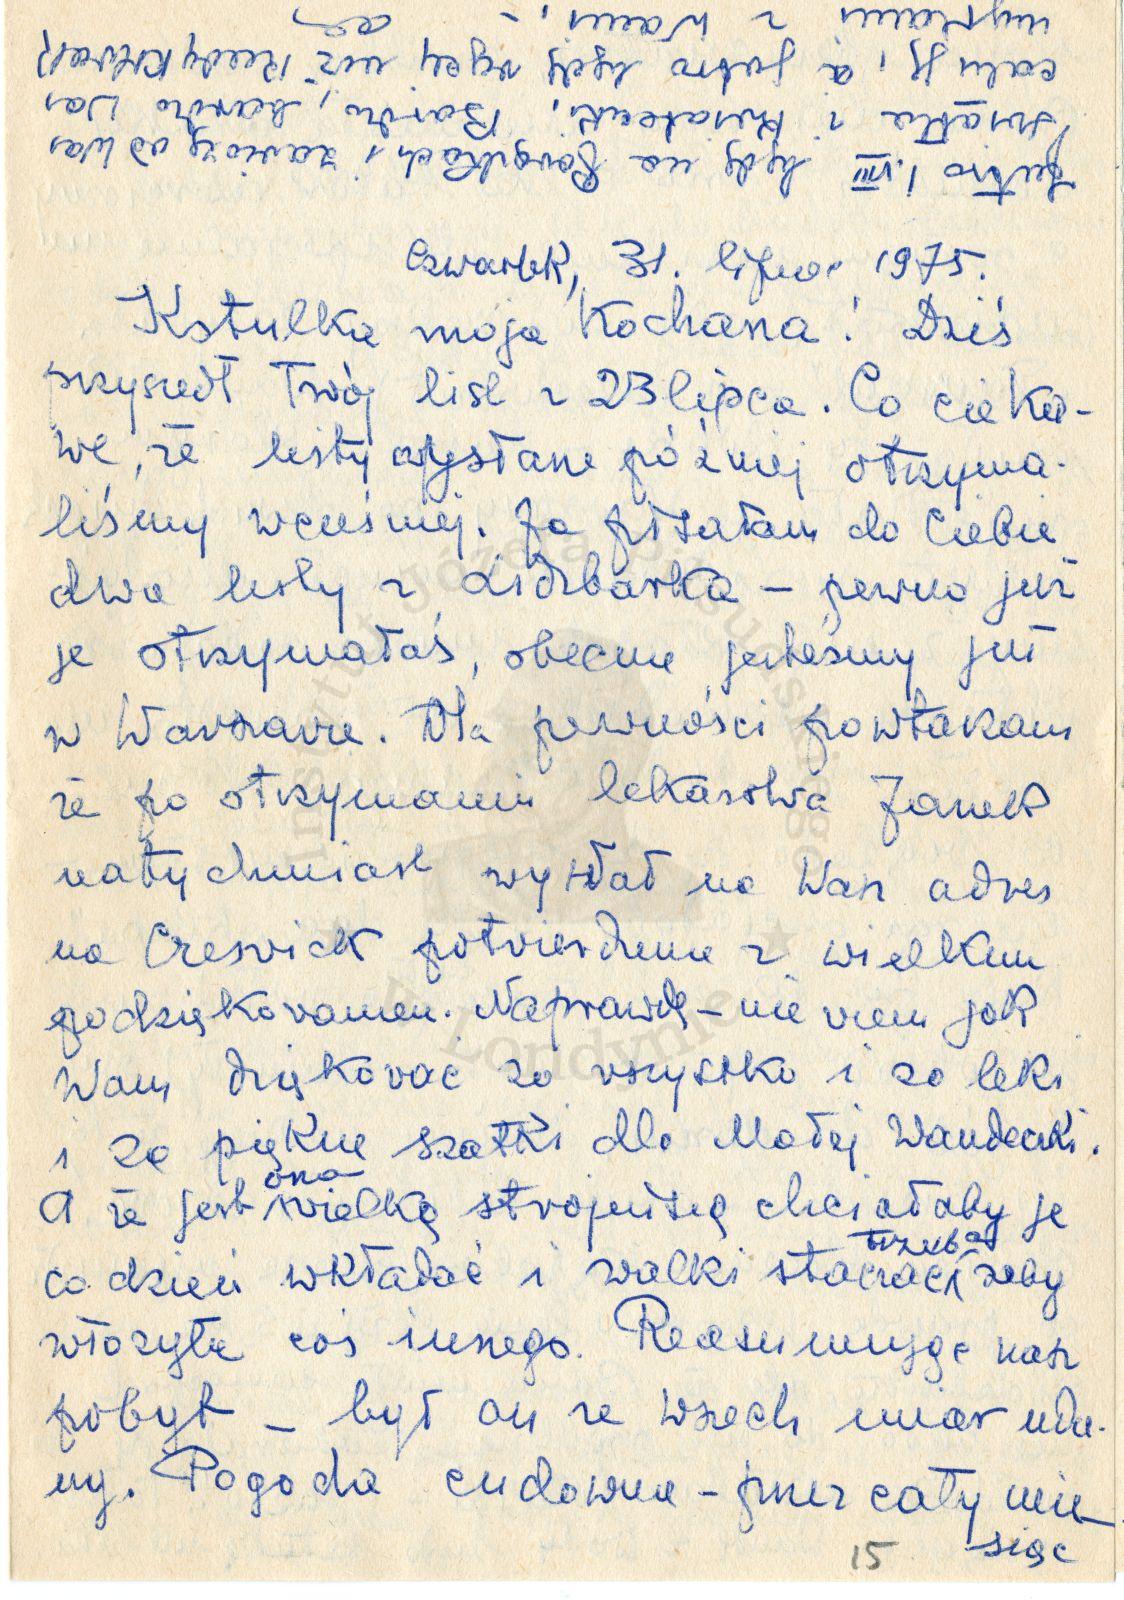 Jutro 1.VIII będę na Powązkach i zawiozę od Was
kwiatka i kwiateczki, Bardzo, bardzo Was
całuję, a jutro będę
myślami z Wami,
Czwartek, 31. lipca 1975.
Kstulka moja Kochana! Dziś
przyszedł Twój list z 23 lipca. Co cieka-
we, że listy wysłane później otrzyma-
liśmy wcześniej. Ja pisałam do Ciebie
dwa listy z Lidzbarka – pewno już
je otrzymałaś, obecnie jesteśmy już
w Warszawie. Dla pewności powtarzam
że po otrzymaniu lekarstwa Janek
natychmiast wysłał na Wasz adres
na Creswick potwierdzenie z wielkim
podziękowaniem. Naprawdę – nie wiem jak
Wam dziękować za wszystko i za leki
i za piękne szatki dla Małej Wandeczki.
A że jest ona wielką strojnisią chciałaby je
co dzień wkładać i walki staczać trzeba żeby
włożyła coś innego. Reasumując nasz
pobyt – był on ze wszech miar uda-
ny. Pogoda cudowna – przez cały mie-
siąc
15
Instytut Józefa Piłsudskiego
w Londynie